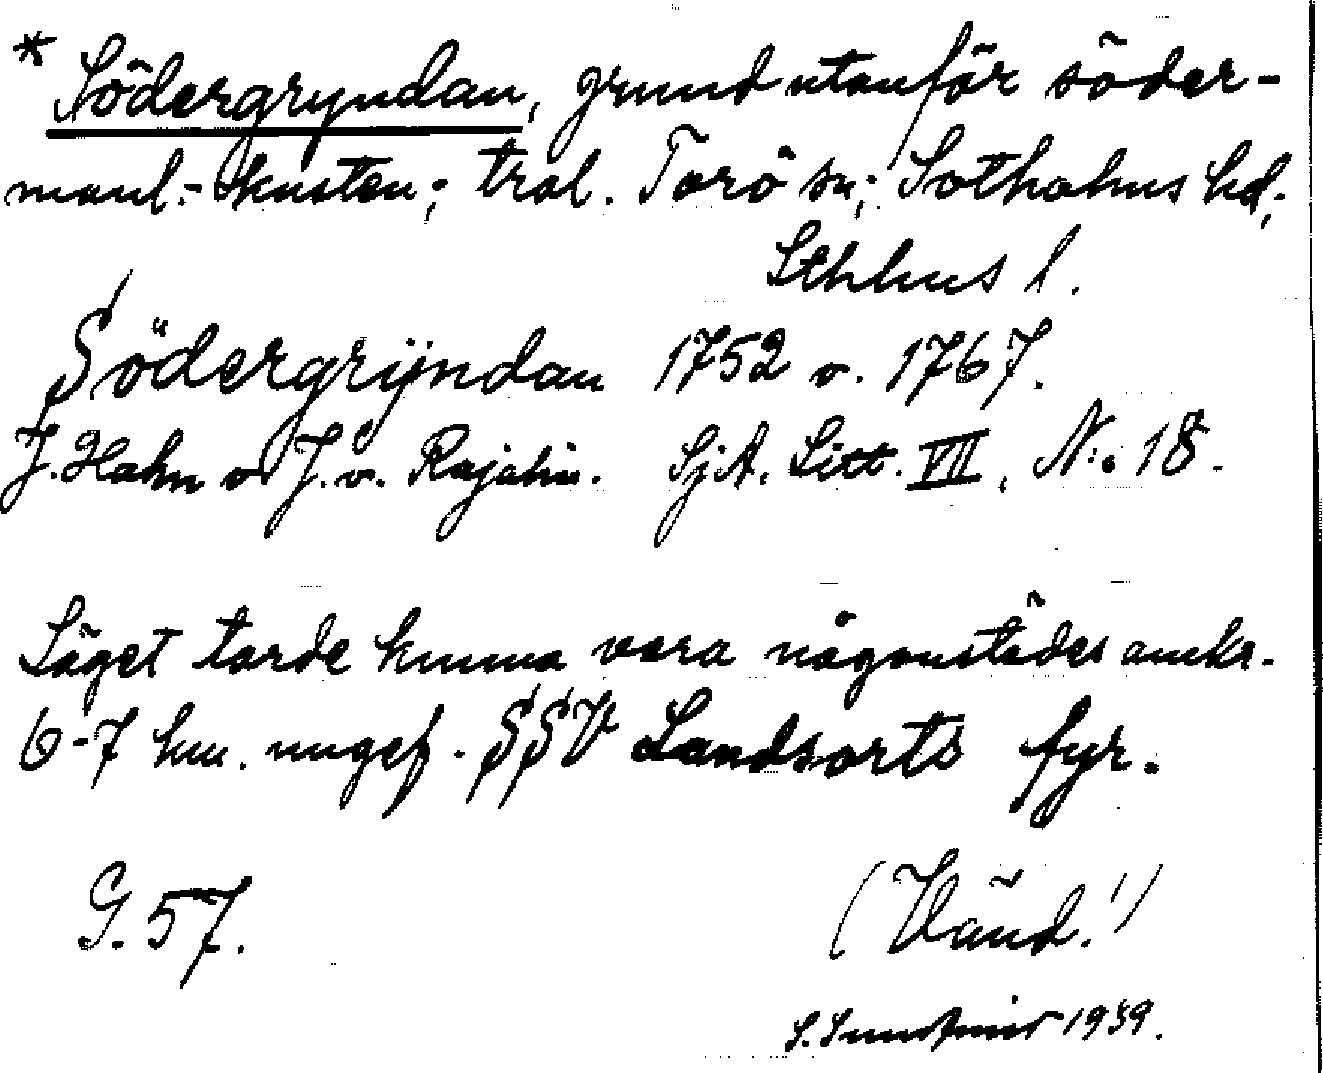 * Södergryndan, grund utanför söder-
manl.-kusten; trol. Torö sn; Sotholms hd;
Sthlms l.
Södergrÿndan 1752 o. 1767.
J. Hahn o. J. v. Rajalin. SjA. Litt. VII, N:o 18.
Läget torde kunna vara någonstädes omkr.
6-7 km. ungef. SSV Landsorts fyr.
G. 57.
(Vänd!)
1939.